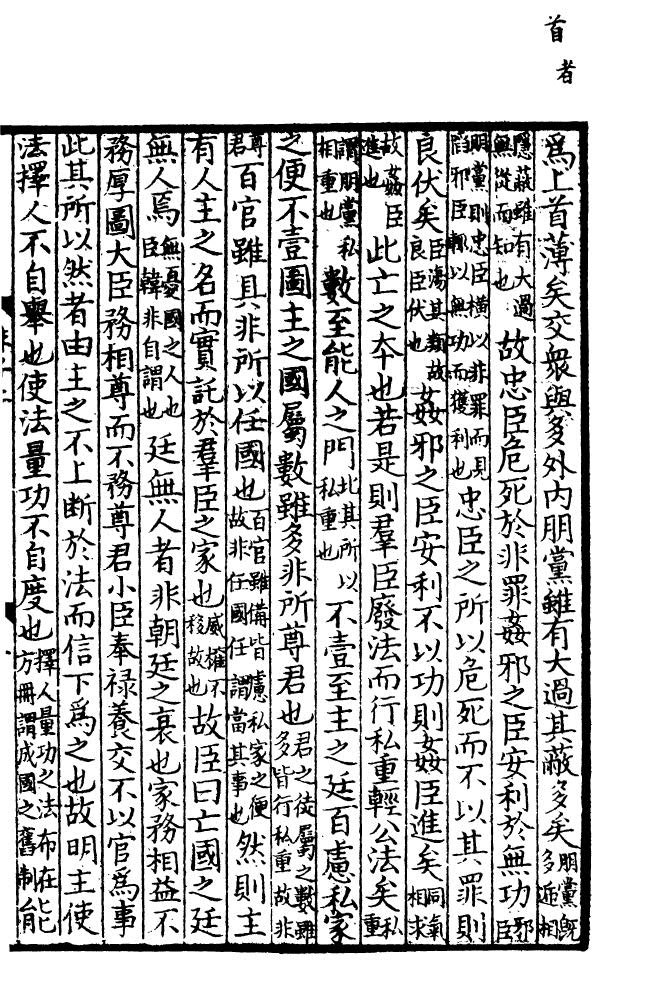 首
者
爲上首薄矣交衆與多外内朋黨雖有大過其蔽多矣朋黨既多遞相
隱蔽雖有大過無從而知也故忠臣危死於非罪姦邪之臣安利於無功邪臣
朋黨則忠臣橫以非罪而見陷邪臣輒以無功而獲利也忠臣之所以危死而不以其罪則
良伏矣臣傷其類故良臣伏也姦邪之臣安利不以功則姦臣進矣同氣相求
故姦臣進也此亡之夲也若是則羣臣廢法而行私重輕公法矣私重
謂朋黨私相重也數至能人之門此其所以私重也不壹至主之廷百慮私家
之便不壹圖主之國屬數雖多非所尊君也君之徒屬之數雖多皆行私重故非
尊君百官雖具非所以任國也百官雖備皆慮私家之便故非任國任謂當其事也然則主
有人主之名而實託於羣臣之家也威權不移故也故臣曰亡國之廷
無人焉無憂國之人也臣韓非自謂也廷無人者非朝廷之衰也家務相益不
務厚圖大臣務相尊而不務尊君小臣奉禄養交不以官爲事
此其所以然者由主之不上斷於法而信下爲之也故明主使
法擇人不自舉也使法量功不自度也擇人量功之法布在方冊謂成國之舊制能